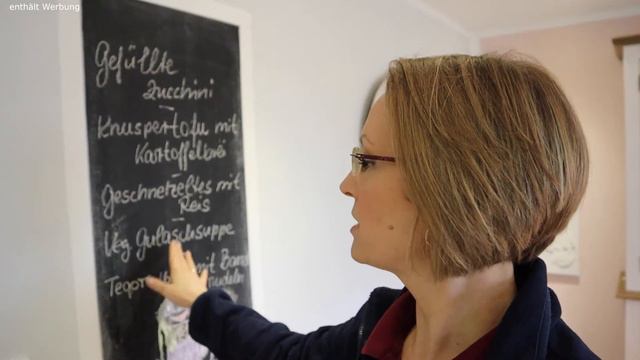 enthält Werbung
Gefüllte
Zucchini
Knuspertofu mit
Kartoffelbrei
Geschnetzeltes mit
Reis
Veg Gulaschsuppe
mit